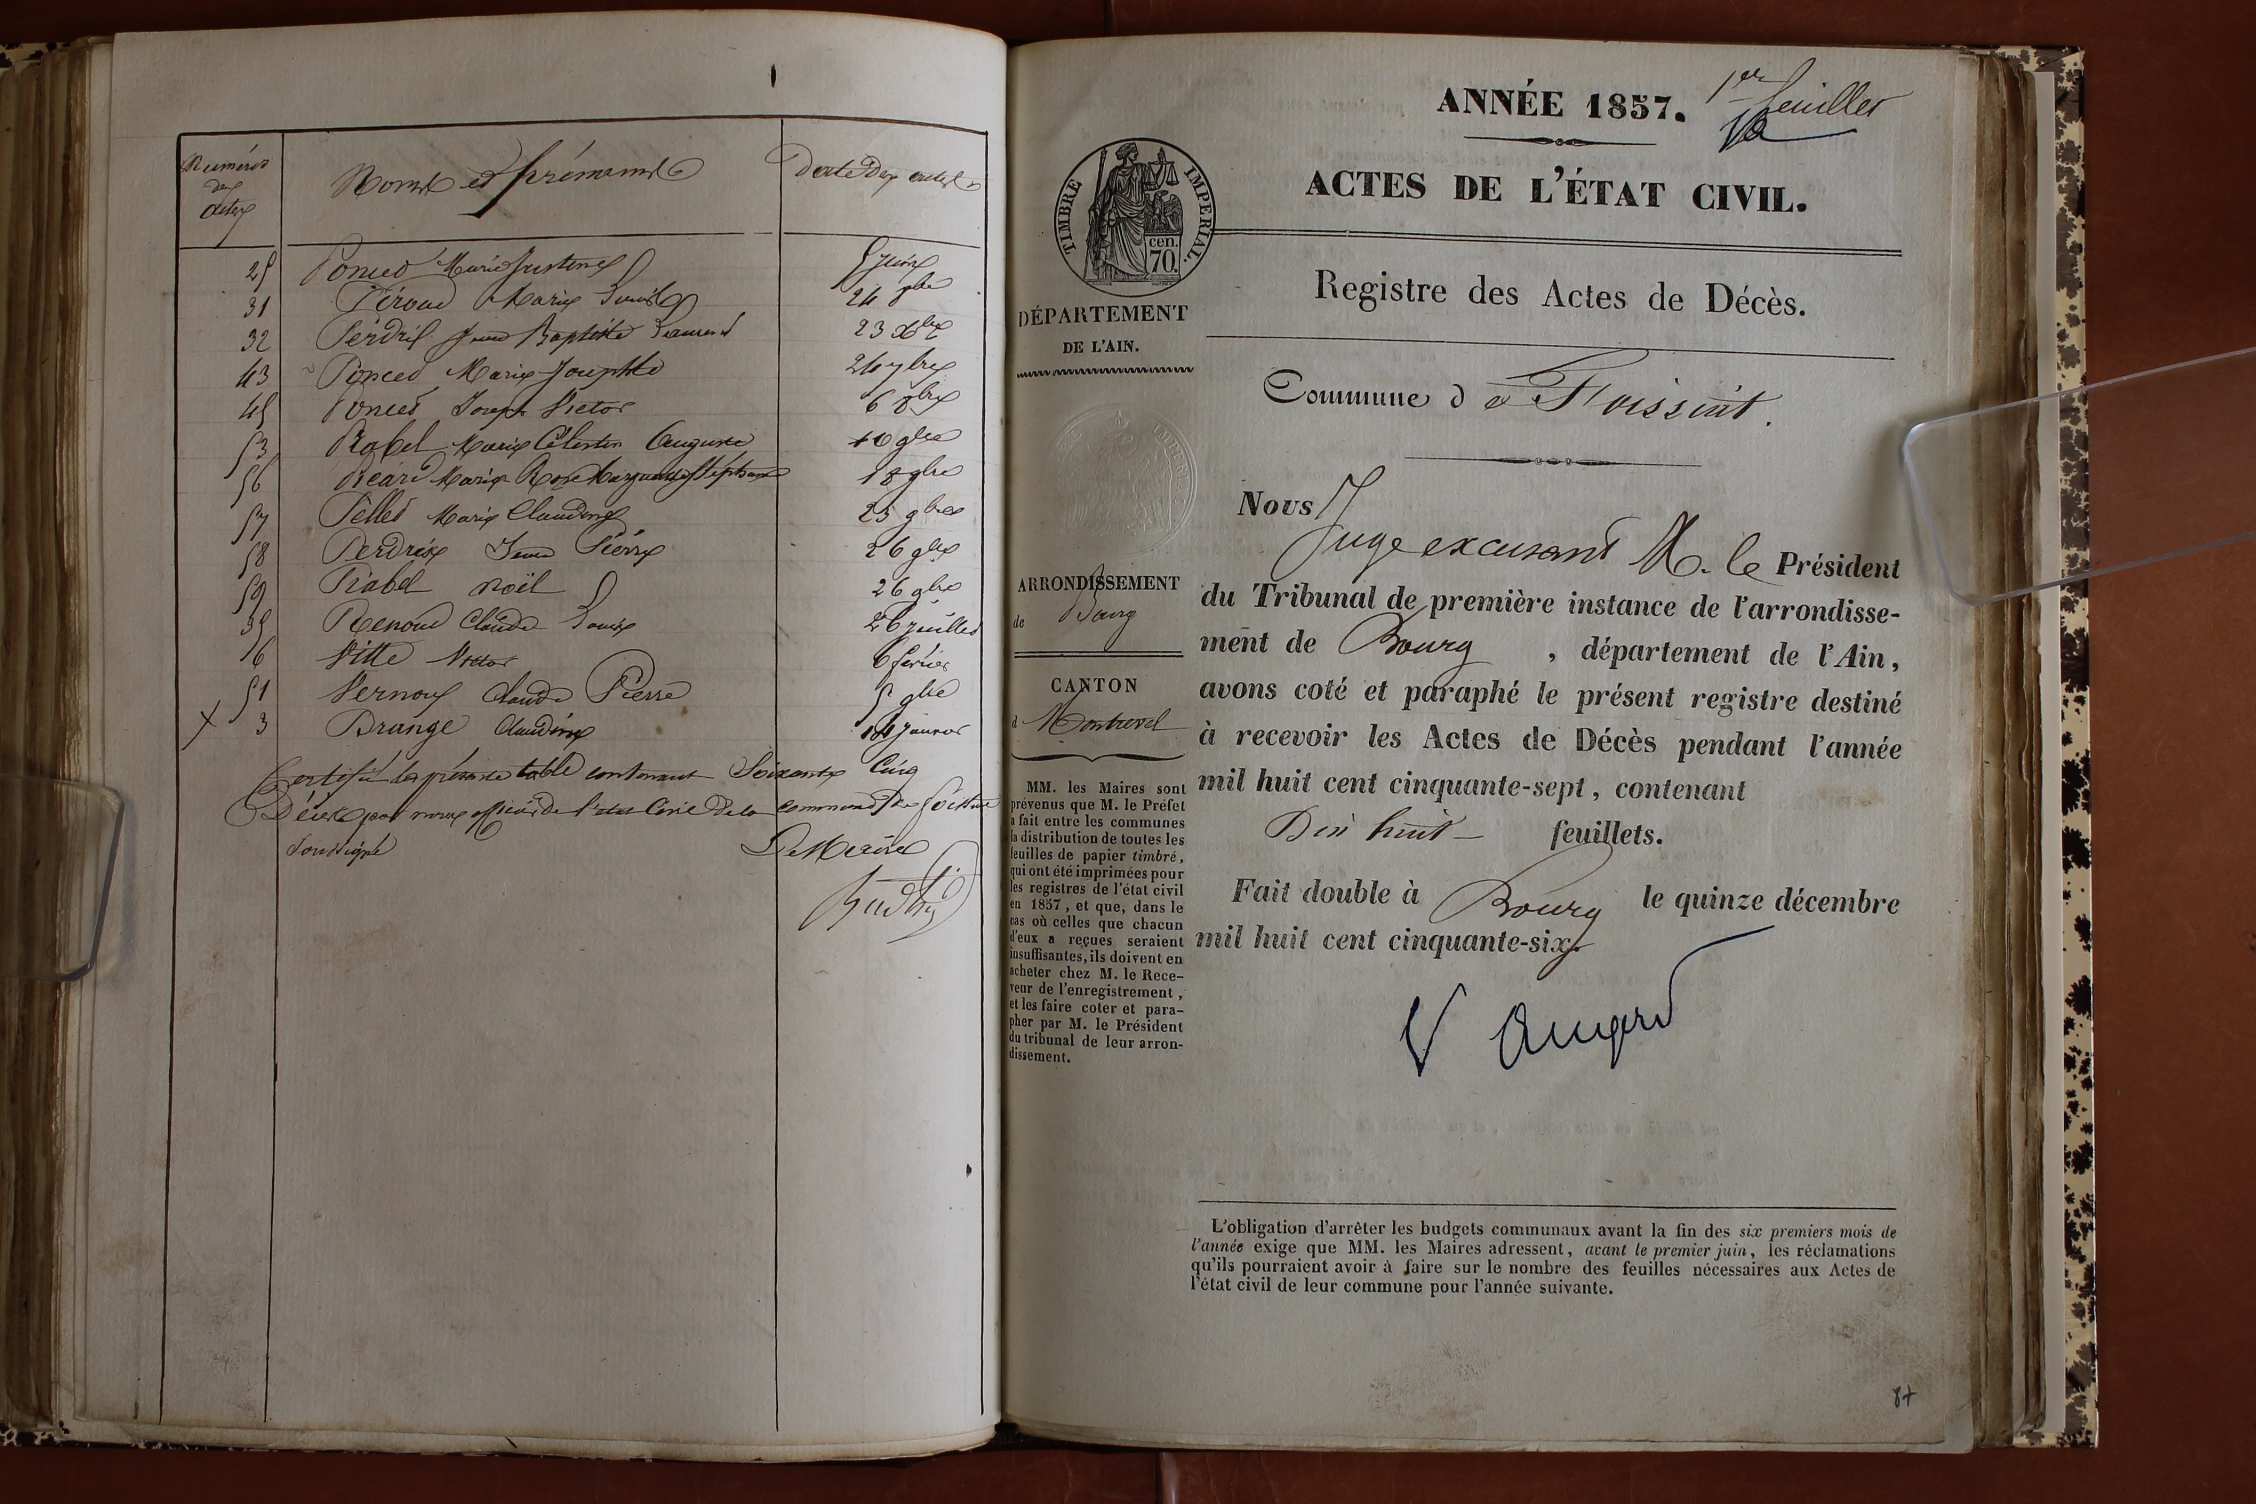 Numéros
des
actes
Noms et prénoms
Date des actes
25 Poncet Marie Justine 5 juin
31 Marie Louise 24
32 Jean Baptiste 23
43 Poncet Marie Josephte 24 7bre
45 Poncet Joseph Victor 6 8bre
53 Rabel Marie Célestin Auguste 10 9bre
56 Marie Rose Marguerite Stéphanie 18 9bre
57 Pellet Marie Claudine 25 9bre
58 Perdrix Jean Pierre 26 9bre
59 Rabel Noël 26 9bre
35 Renoud Claude Louise 26 juillet
16 Vitte Victor 6 février
51 Vernoux Claude Pierre 5 9bre
x 3 Brange Claudine 14 janvier
Certifié la présente table contenant Soixante Cinq
Décès par nous officier de l'état Civil de la commune de Foissiat
Soussigné Le Maire
ANNÉE 1857.
1er feuillet
ACTES DE L'ÉTAT CIVIL.
TIMBRE IMPERIAL.
cen.
70.
Registre des Actes de Décès.
DÉPARTEMENT
DE L'AIN.
Commune de Foissiat.
Nous
Juge excusant M. le Président
ARRONDISSEMENT
de Bourg
du Tribunal de première instance de l'arrondisse-
ment de Bourg, département de l'Ain,
CANTON
d Montrevel
avons coté et paraphé le présent registre destiné
à recevoir les Actes de Décès pendant l'année
mil huit cent cinquante-sept, contenant
Dix huit feuillets.
Fait double à Bourg le quinze décembre
mil huit cent cinquante-six.
MM. les Maires sont
prévenus que M. le Préfet
a fait entre les communes
la distribution de toutes les
feuilles de papier timbré,
qui ont été imprimées pour
les registres de l'état civil
en 1857, et que, dans le
cas où celles que chacun
d'eux a reçues seraient
insuffisantes, ils doivent en
acheter chez M. le Rece-
veur de l'enregistrement,
et les faire coter et para-
pher par M. le Président
du tribunal de leur arron-
dissement.
L'obligation d'arrêter les budgets communaux avant la fin des six premiers mois de
l'année exige que MM. les Maires adressent, avant le premier juin, les réclamations
qu'ils pourraient avoir à faire sur le nombre des feuilles nécessaires aux Actes de
l'état civil de leur commune pour l'année suivante.